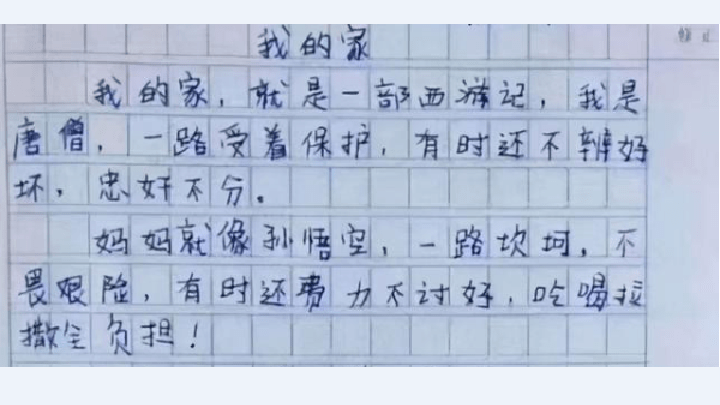 我的家
我的家，就是一部西游记，我是
唐僧，一路受着保护，有时还不辨好
坏，忠奸不分。
妈妈就像孙悟空，一路坎坷，不
畏艰险，有时还费力不讨好，吃喝拉
撒全负担！